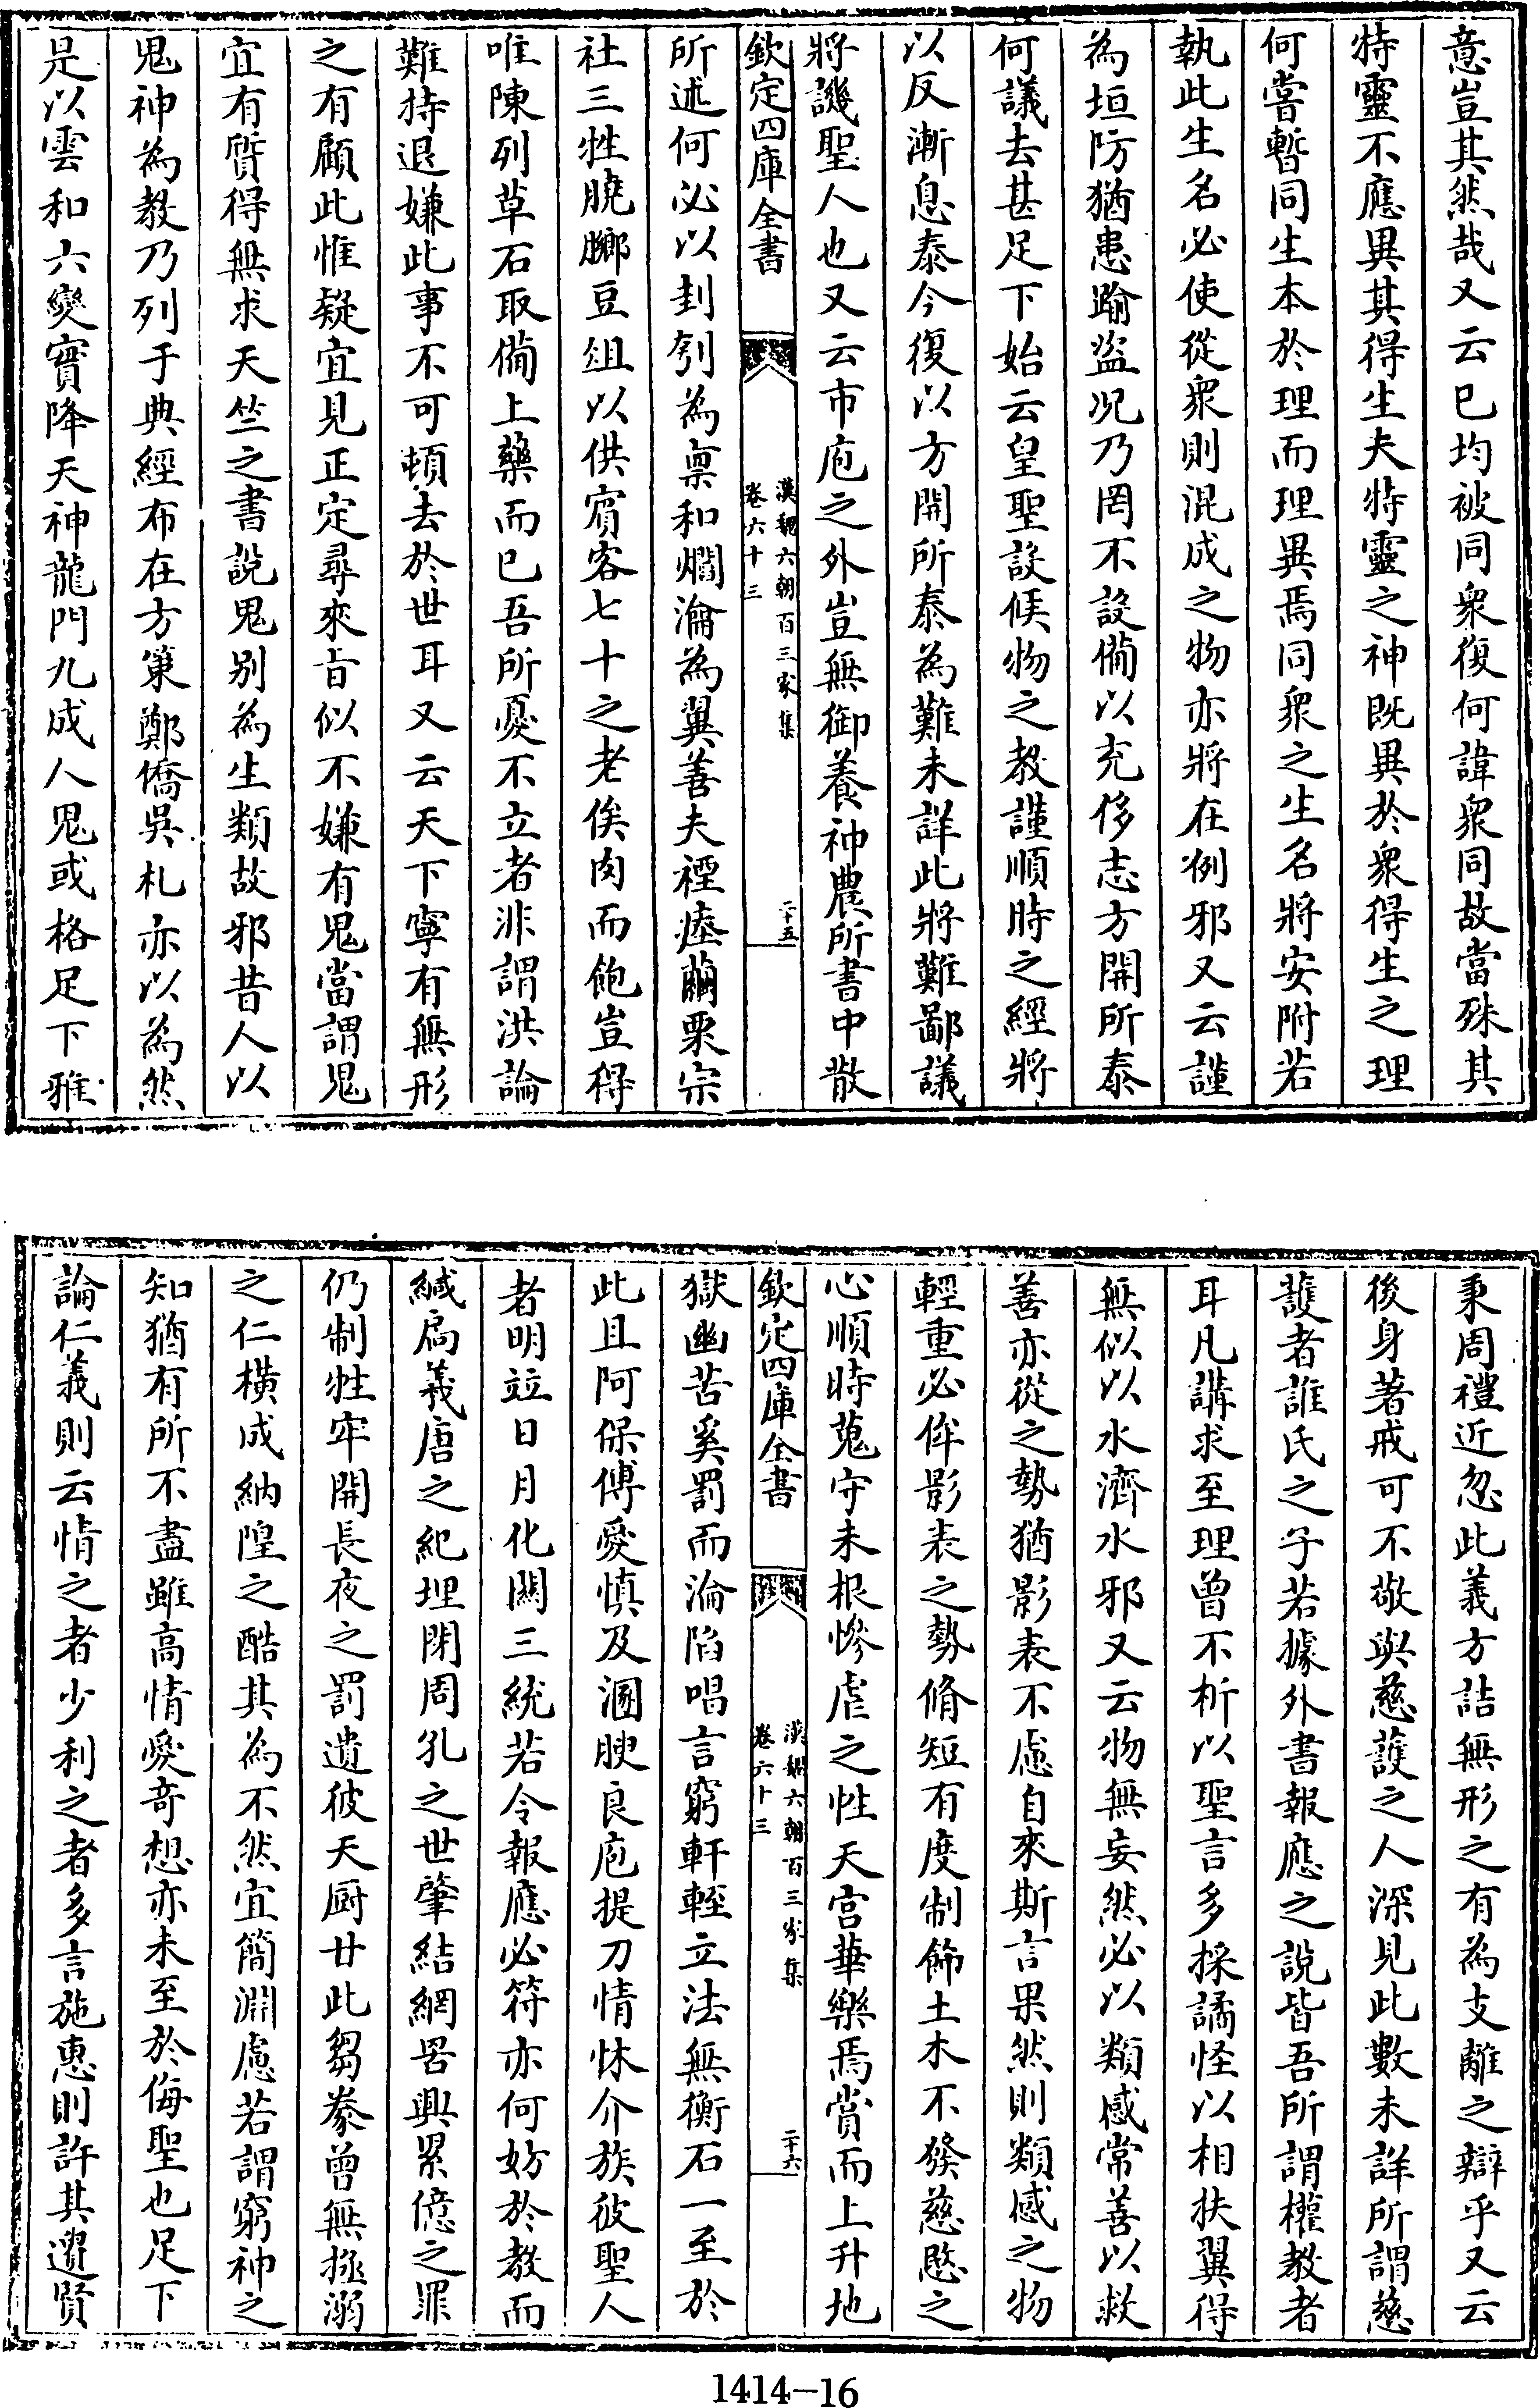 意豈其然哉又云已均被同衆復何諱衆同故當殊其
特靈不應異其得生夫特靈之神既異於衆得生之理
何嘗暫同生本於理而理異焉同衆之生名將安附若
執此生名必使從衆則混成之物亦將在例邪又云謹
為垣防猶患踰盜况乃罔不設備以充侈志方開所泰
何議去甚足下始云皇聖設候物之教謹順時之經將
以反漸息泰今復以方開所泰為難未詳此將難鄙議
將譏聖人也又云市庖之外豈無御養神農所書中散
欽定四庫全書
漢魏六朝百三家集
卷六十三
二十五
所述何必以刲刳為稟和爓瀹為翼善夫禋瘞繭栗宗
社三牲膮膷豆俎以供賓客七十之老俟肉而飽豈得
唯陳列草石取備上藥而已吾所憂不立者非謂洪論
難持退嫌此事不可頓去於世耳又云天下寧有無形
之有顧此惟疑宜見正定尋來旨似不嫌有鬼當謂鬼
宜有質得無求天竺之書說鬼別為生類故邪昔人以
鬼神為教乃列于典經布在方䇿鄭僑吳札亦以為然
是以雲和六變實降天神龍門九成人鬼或格足下雅
秉周禮近忽此義方詰無形之有為支離之辯乎又云
後身著戒可不敬與慈護之人深見此數未詳所謂慈
護者誰氏之子若據外書報應之說皆吾所謂權教者
耳凡講求至理曾不析以聖言多採譎怪以相扶翼得
無似以水濟水邪又云物無妄然必以類感常善以救
善亦從之勢猶影表不慮自來斯言果然則類感之物
輕重必侔影表之勢脩短有度制飾土木不發慈愍之
心順時蒐守未根慘虐之性天宮華樂焉賞而上升地
欽定四庫全書
漢魏六朝百三家集
卷六十三
二十六
獄幽苦奚罰而淪陷唱言窮軒輊立法無衡石一至於
此且阿保傅愛慎及溷腴良庖提刀情怵介族彼聖人
者明竝日月化關三統若令報應必符亦何妨於教而
緘扃羲唐之紀埋閉周孔之世肇結網罟興累億之罪
仍制牲牢開長夜之罰遺彼天厨甘此芻豢曾無拯溺
之仁橫成納隍之酷其為不然宜簡淵慮若謂窮神之
知猶有所不盡雖高情愛奇想亦未至於侮聖也足下
論仁義則云情之者少利之者多言施惠則許其遺賢
1414-16